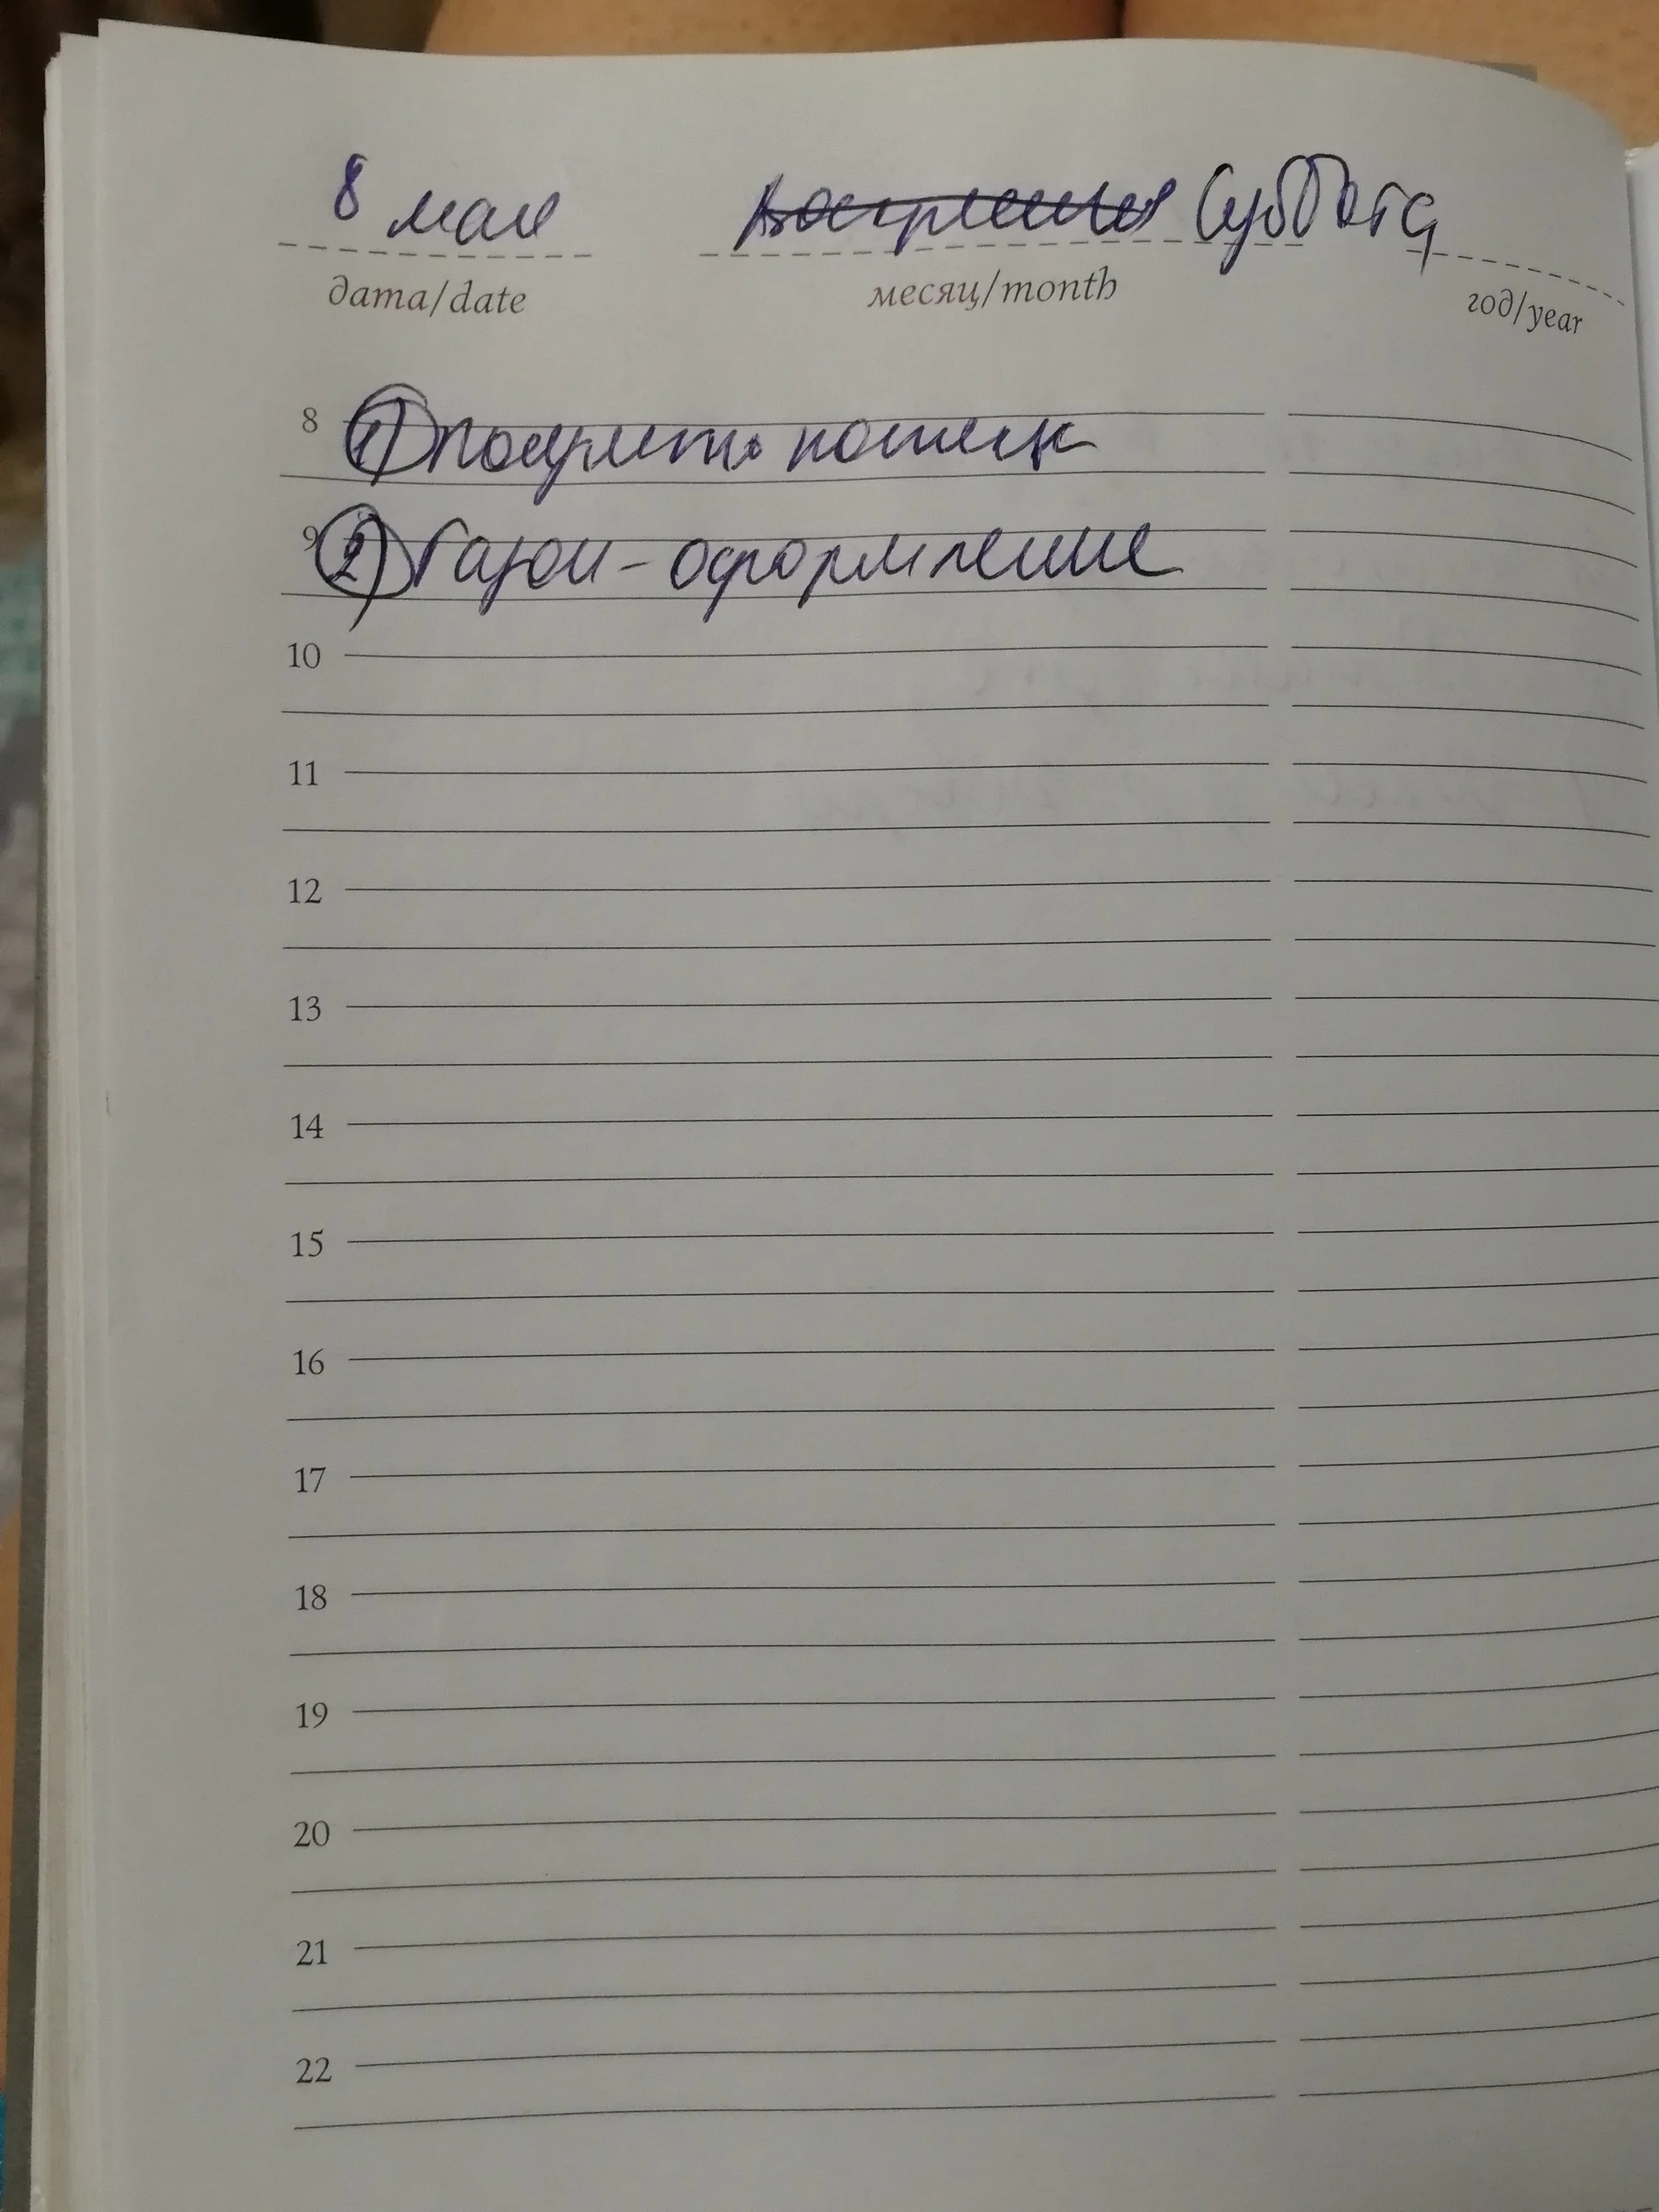 8 мая Воскресенье Суббота
дата/date месяц/month год/year
8 1) Покормить кошек
9 2) Газон - оформление
10
11
12
13
14
15
16
17
18
19
20
21
22